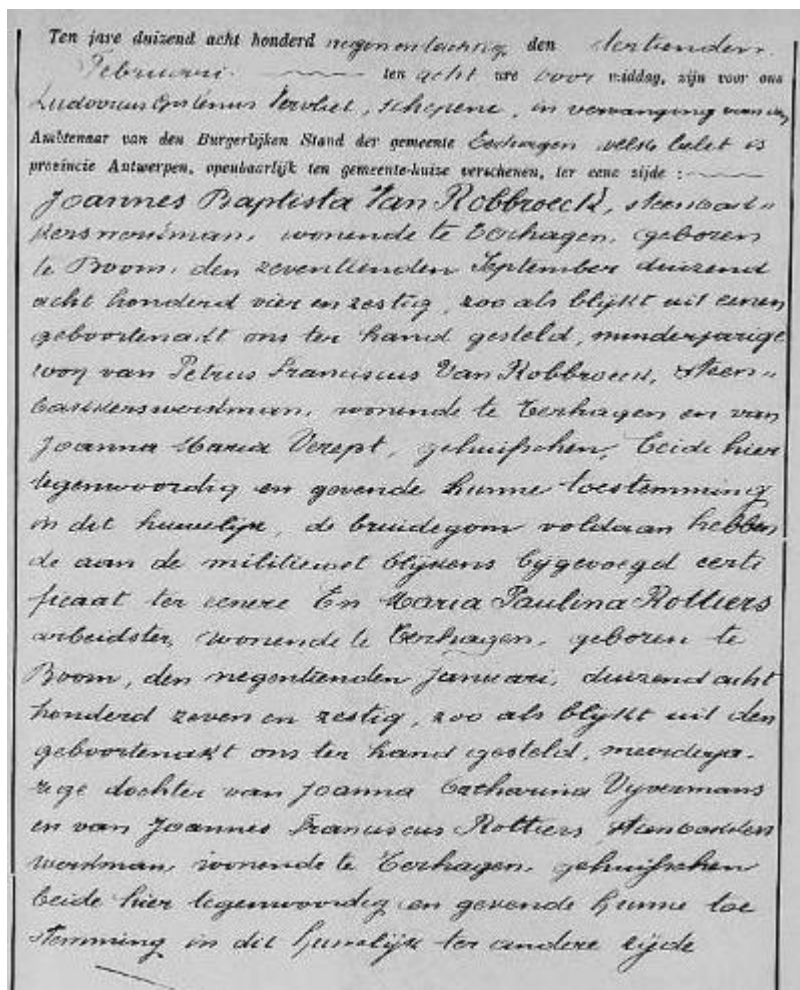 Ten jare duizend acht honderd negen en tachtig den dertienden
Februari ten acht ure voor middag, zijn voor ons
Ludovicus Vervliet, schepene, in vervanging van den
Ambtenaar van den Burgerlijken Stand der gemeente Terhagen belet is
provincie Antwerpen, openbaarlijk ten gemeente-huize verschenen, ter eene zijde :
Joannes Baptista Van Robbroeck, steenbak„
kerswerkman, wonende te Terhagen, geboren
te Boom, den zeventienden September duizend
acht honderd vier en zestig, zoo als blijkt uit eenen
geboortenakt ons ter hand gesteld, minderjarige
zoon van Petrus Franciscus Van Robbroeck, steen„
bakkerswerkman, wonende te Terhagen en van
Joanna Maria Verept, gehuisschen, beide hier
tegenwoordig en gevende hunne toestemming
in dit huwelijk, de bruidegom voldaan hebben
de aan de militiewet blijkens bijgevoegd certi
ficaat ter eenere En Maria Paulina Rottiers
arbeidster, wonende te Terhagen, geboren te
Boom, den negentienden Januari, duizend acht
honderd zeven en zestig, zoo als blijkt uit den
geboortenakt ons ter hand gesteld, meerderja-
rige dochter van Joanna Catharina Vyvermans
en van Joannes Franciscus Rottiers, steenbakkers
werkman wonende te Terhagen, gehuisschen
beide hier tegenwoordig en gevende hunne toe
stemming in dit huwelijk ter andere zijde